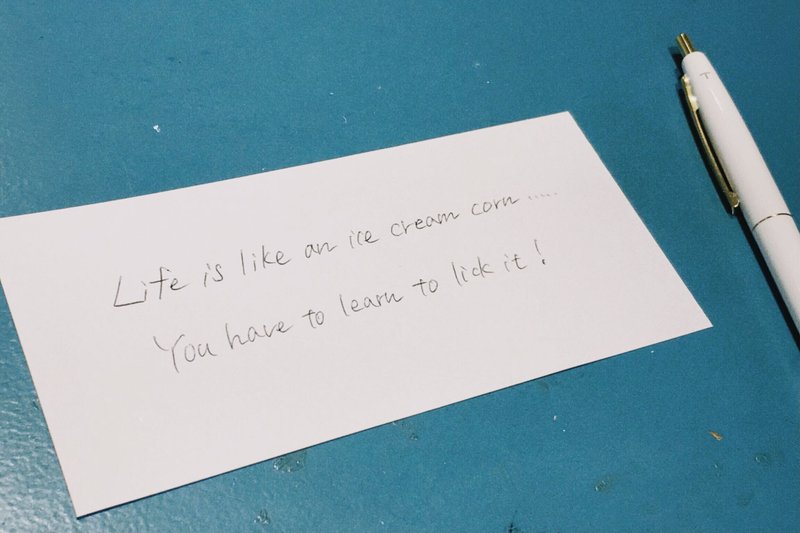 Life is like an ice cream corn .....
You have to learn to lick it!